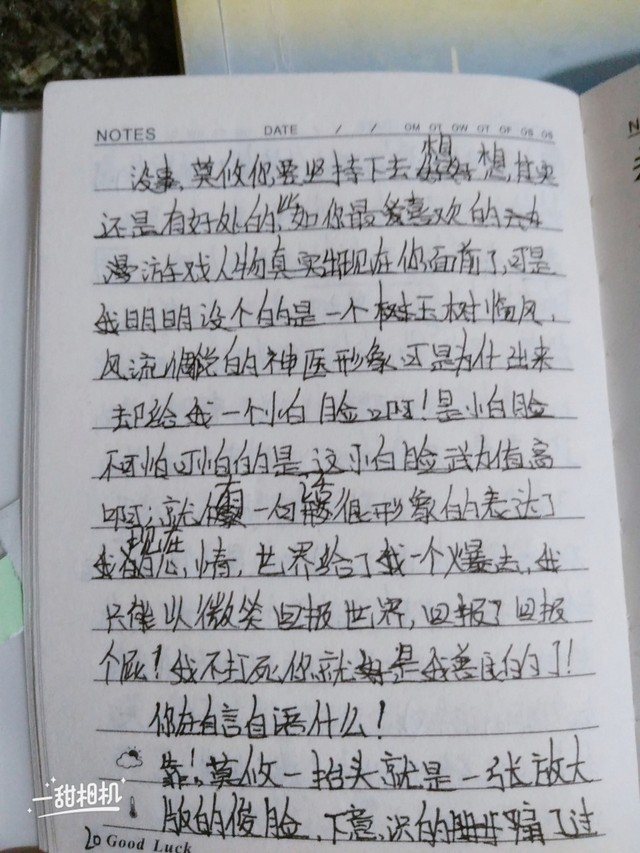 NOTES DATE / / OM OT OW OT OF OS OS
没事,莫攸你要坚持下去想想,其实
还是有好处的,如你最喜欢的
漫游戏人物真实出现在你面前了,可是
我明明设个的是一个玉树临风,
风流倜傥的神医形象可是为什出来
却给我一个小白脸啊!是小白脸
不可怕可怕的是这小白脸武力值高
啊;就有一句话很形象的表达了
我现在心情,世界给了我一个爆击,我
只能以微笑回报世界,回报了回报
个屁!我不打死你就是我善良的了!
你在自言自语什么!
靠!莫攸一抬头就是一张放大
版的俊脸,下意识的脚步踹了过
20 Good Luck
一甜相机